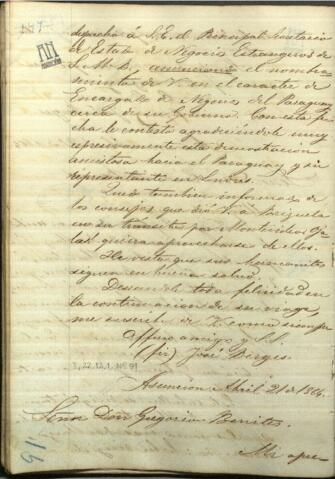 despacho á S.E. el Principal Secretario
de Estado de Negocios Estrangeros de
S.M.B., anunciando el nombra
miento de V. en el caracter de
Encargado de Negocios del Paraguay
cerca de su Gobierno. Con esta fe
cha le contesto agradeciendole muy
espresivamente esta demostracion
amistosa hacia el Paraguay y su
representante en Londres.
Quedo tambien informado de
los consejos que dió V. á Brizuela
en su transito por Montevideo. Oja
lá quiera aprovecharse de ellos.
He visto que sus hermanitos
siguen en buena salud.
Deseandole toda felicidad en
la continuacion de su viage,
me suscribo de V. como siempre
Affmo amigo y S.S.
(fir) José Berges.
I, 22, 12, 1 Nº 91
Asuncion Abril 21 de 1864.
Señor Don Gregorio Benites.